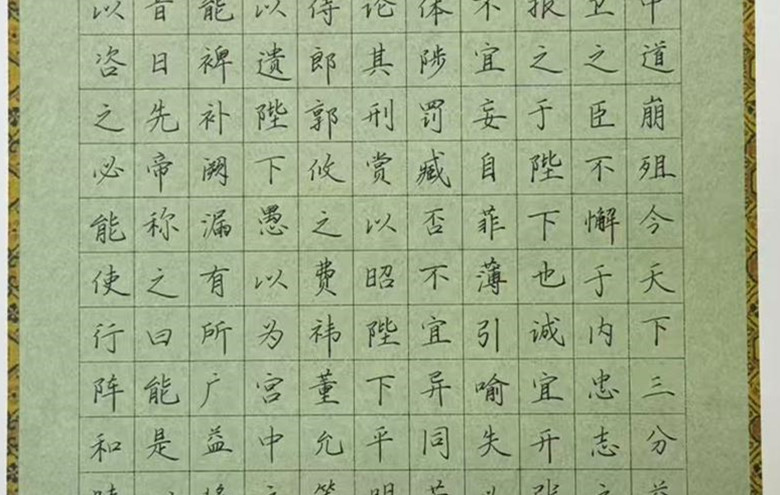 中道崩殂今天下三分益
卫之臣不懈于内忠志之
报之于陛下也诚宜开张
不宜妄自菲薄引喻失
体陟罚臧否不宜异同若
论其刑赏以昭陛下平明
侍郎郭攸之费祎董允等
以遗陛下愚以为宫中之
能裨补阙漏有所广益将
昔日先帝称之曰能是以
以咨之必能使行阵和睦